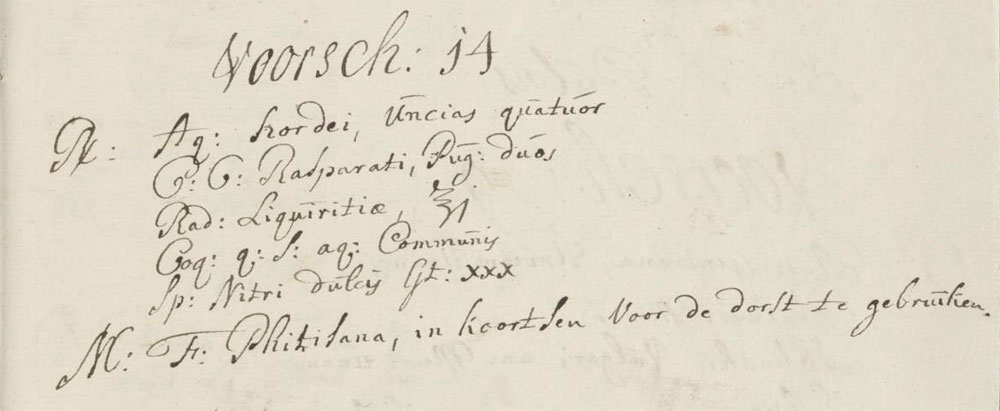 Voorsch: 14
Rx: Aq: hordei, Uncias quatuor
C: C: Rasparati, Pug: duos
Rad: Liquiritiæ, ʒj
Coq: q: S: aq: Communis
Sp: Nitri dulcis Gt: xxx
M: F: Phitisana, in koortsen voor de dorst te gebruiken.